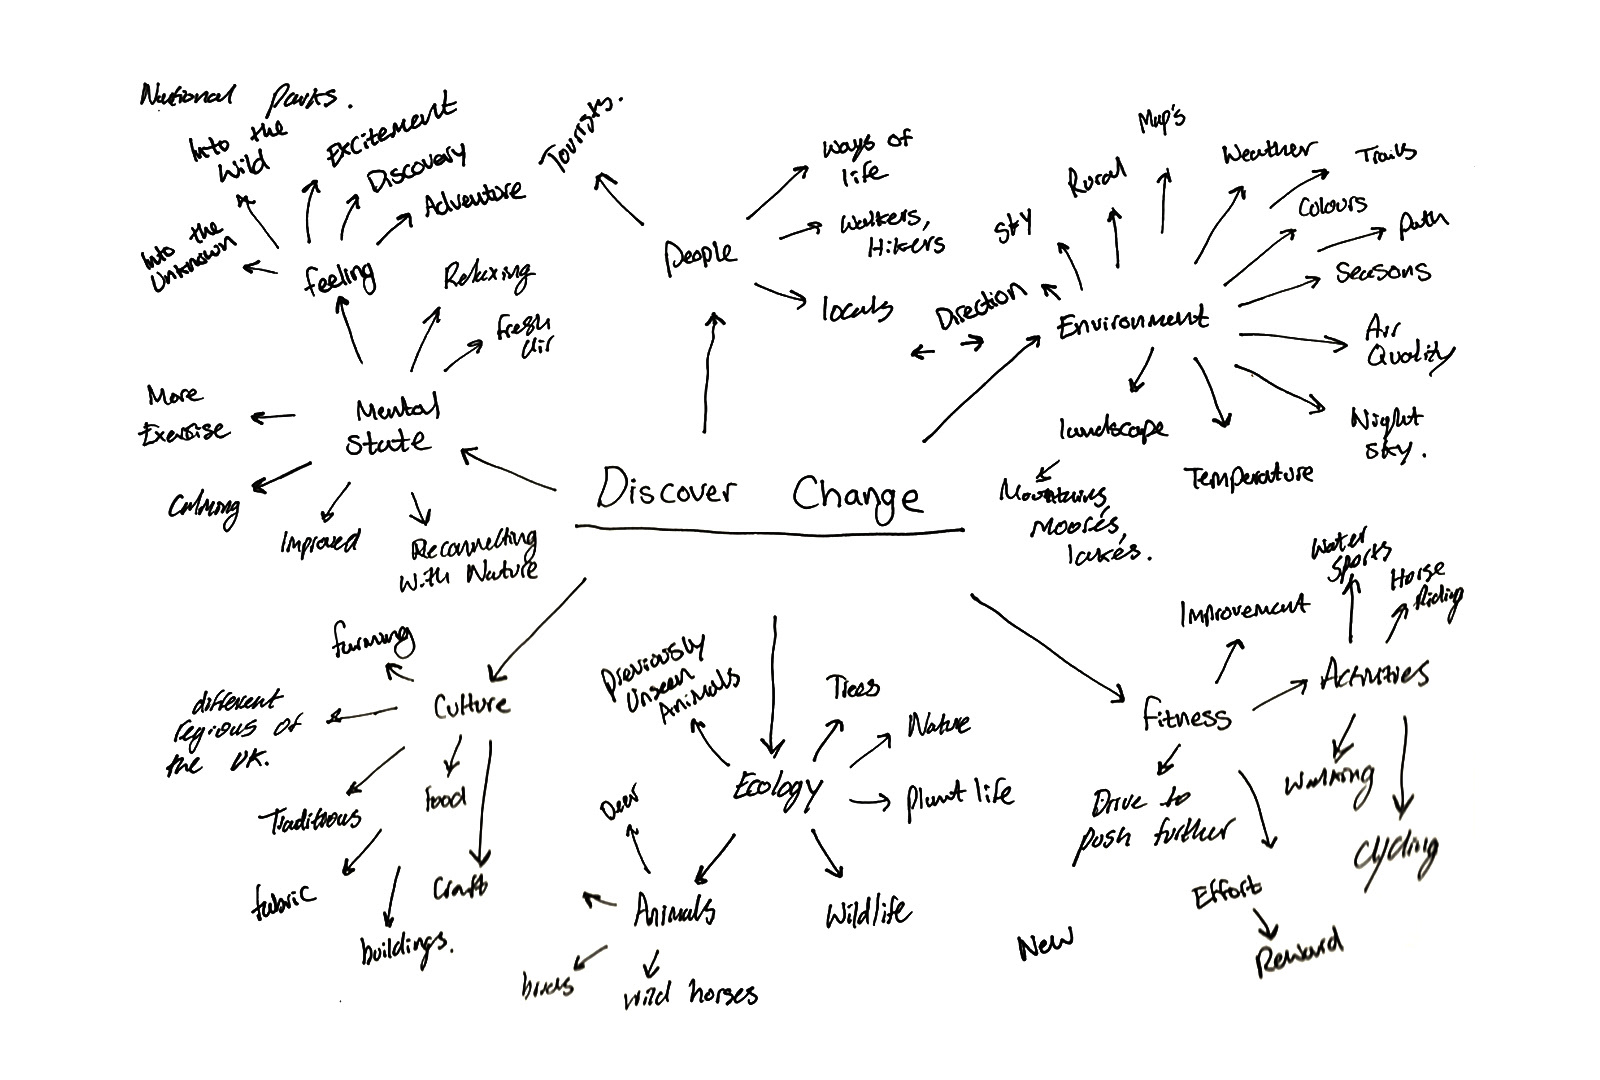 National Parks.
Into the
Wild
Excitement
Discovery
Adventure
Into the
Unknown
feeling
Relaxing
Fresh
air
More
Exersise
Mental
State
Calming
Improved
Reconnecting
With Nature
Tourists.
People
Ways of
life
Walkers,
Hikers
locals
Map's
Rural
Sky
Direction
Weather
Trails
Colours
Path
Seasons
Environment
Air
Quality
Night
Sky.
Temperature
landscape
Mountains,
Moores,
lakes.
Discover Change
farming
Culture
different
regions of
the UK.
Traditions
food
fabric
Craft
buildings.
Previously
Unseen
Animals
Trees
Nature
Ecology
Plant life
Deer
Animals
Wildlife
birds
Wild horses
Water
Sports
Horse
Riding
Improvement
Activities
Fitness
Walking
Drive to
push further
Cycling
Effort
Reward
New